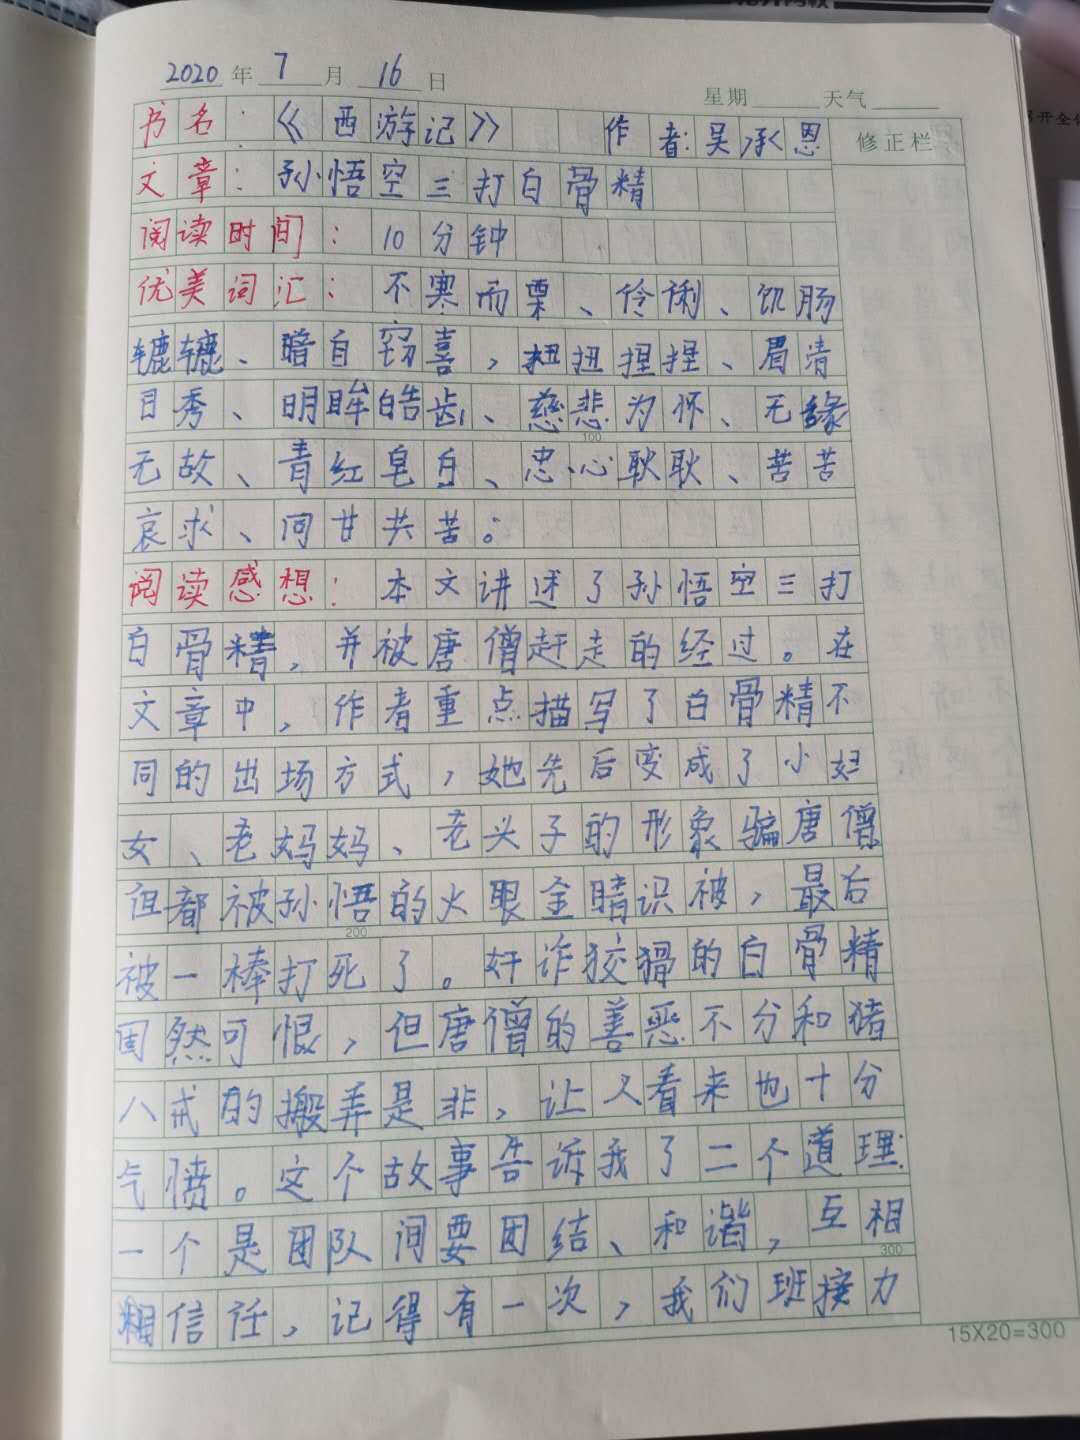 2020年7月16日
星期 天气
书名:《西游记》 作者:吴承恩
修正栏
文章:孙悟空三打白骨精
阅读时间:10分钟
优美词汇:不寒而栗、伶俐、饥肠
辘辘、暗自窃喜,扭扭捏捏、眉清
目秀、明眸皓齿、慈悲为怀、无缘
100
无故、青红皂白、忠心耿耿、苦苦
哀求、同甘共苦。
阅读感想:本文讲述了孙悟空三打
白骨精,并被唐僧赶走的经过。在
文章中,作者重点描写了白骨精不
同的出场方式,她先后变成了小妇
女、老妈妈、老头子的形象骗唐僧
但都被孙悟的火眼金睛识被,最后
200
被一棒打死了。奸诈狡猾的白骨精
固然可恨,但唐僧的善恶不分和猪
八戒的搬弄是非,让人看来也十分
气愤。这个故事告诉我了二个道理
一个是团队间要团结、和谐,互相
300
相信任,记得有一次,我们班接力
15X20=300